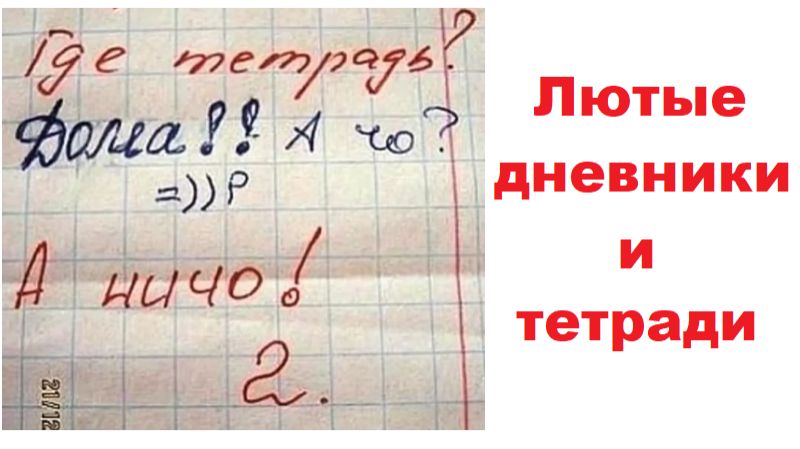 Где тетрадь?
Дома!! А чо?
=))Р
А ничо!
2.
21/12
Лютые
дневники
и
тетради